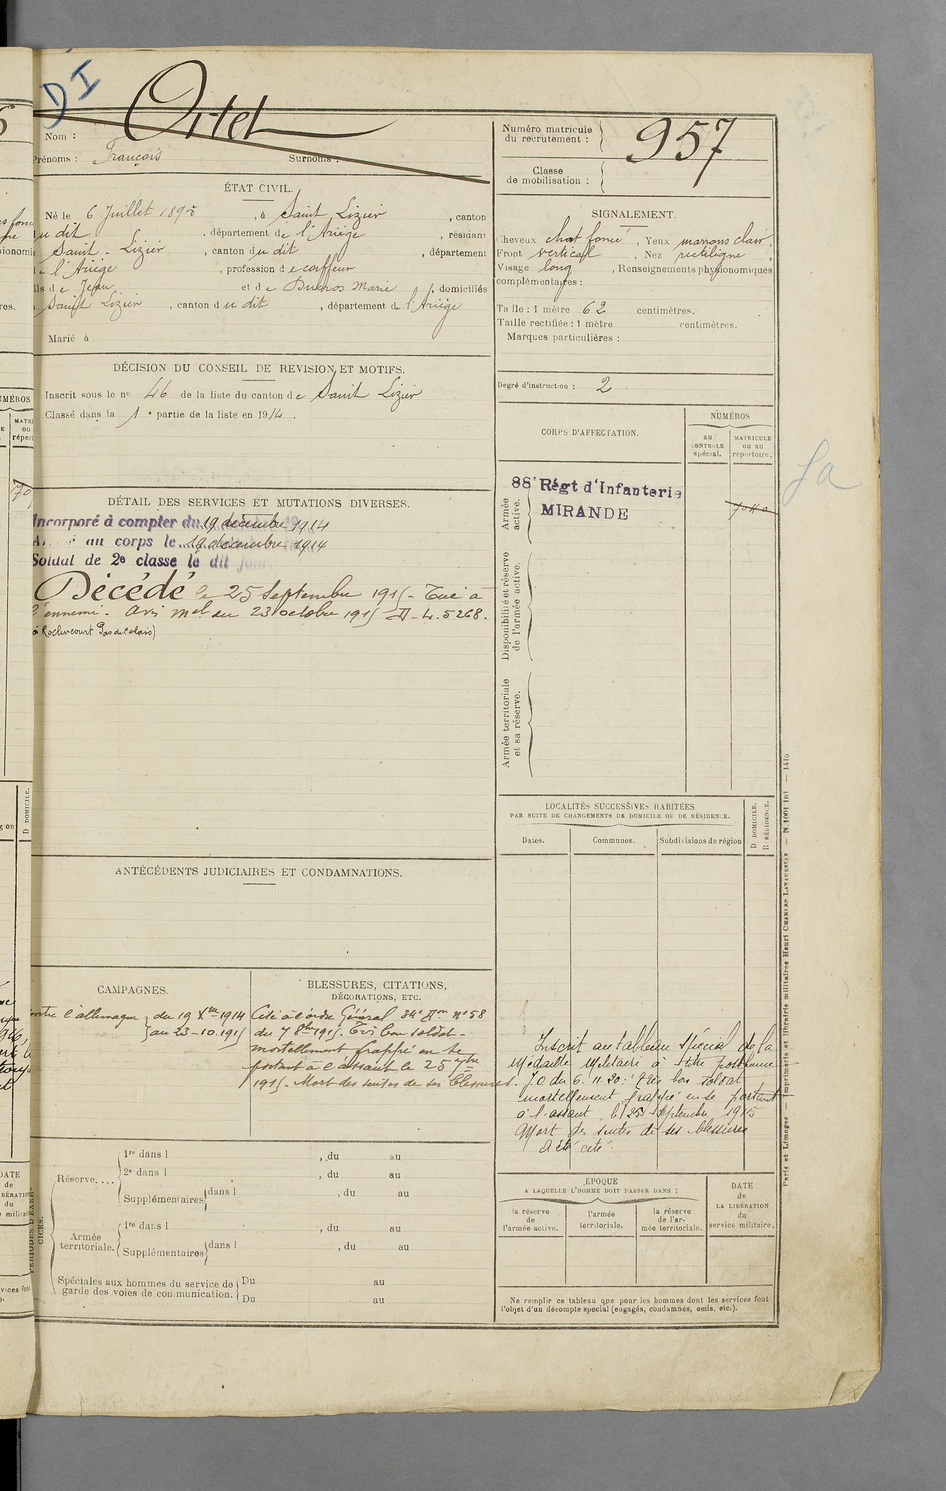 DI
Nom : Ortet
Prénoms : François Surnoms :
Numéro matricule
du recrutement : 957
Classe
de mobilisation :
ÉTAT CIVIL.
Né le 6 Juillet 1895, à Saint Lizier, canton
du dit, département de l'Ariège, résidant
Saint-Lizier, canton du dit, département
de l'Ariège, profession de coiffeur
fils de Jean et de Marie, domiciliés
Saint Lizier, canton du dit, département de l'Ariège
Marié à
SIGNALEMENT.
Cheveux chat foncé, Yeux marrons clair,
Front vertical, Nez rectiligne,
Visage long, Renseignements physionomiques
complémentaires :
Taille : 1 mètre 62 centimètres.
Taille rectifiée : 1 mètre centimètres.
Marques particulières :
Degré d'instruction : 2
DÉCISION DU CONSEIL DE REVISION ET MOTIFS.
Inscrit sous le n° 46 de la liste du canton de Saint Lizier
Classé dans la 1e partie de la liste en 1914.
CORPS D'AFFECTATION.
NUMÉROS
au CONTROLE spécial.
MATRICULE ou au répertoire.
Armée active.
88e Régt d'Infanterie
MIRANDE
Disponibilité et réserve de l'armée active.
Armée territoriale et sa réserve.
DÉTAIL DES SERVICES ET MUTATIONS DIVERSES.
Incorporé à compter du 19 décembre 1914
au corps le 19 décembre 1914
Soldat de 2e classe le dit jour
Décédé le 25 Septembre 1915 - Tué à
l'ennemi. Avis mel du 23 octobre 1915 D-L. 5268.
à Roclincourt Pas de Calais)
LOCALITÉS SUCCESSIVES HABITÉES
PAR SUITE DE CHANGEMENTS DE DOMICILE OU DE RÉSIDENCE.
Dates. Communes. Subdivisions de région
D. DOMICILE.
R. RÉSIDENCE.
ANTÉCÉDENTS JUDICIAIRES ET CONDAMNATIONS.
CAMPAGNES.
contre l'allemagne du 19 Xbre 1914
au 23-10-1915
BLESSURES, CITATIONS,
DÉCORATIONS, ETC.
Cité à l'ordre Général 34e Don n° 58
du 7 8bre 1915. Très bon soldat -
mortellement frappé en se
portant à l'assaut le 25 7bre
1915. Mort des suites de ses blessures.
Inscrit au tableau spécial de la
Médaille Militaire à titre posthume
J.O. du 6.11.20 : Très bon soldat
mortellement frappé en se portant
à l'assaut, le 25 Septembre 1915
Mort des suites de ses blessures
A été cité.
Réserve....
1re dans l , du au
2e dans l , du au
Supplémentaires dans l , du au
Armée territoriale.
1re dans l , du au
Supplémentaires dans l , du au
Spéciales aux hommes du service de
garde des voies de communication.
Du au
Du au
ÉPOQUE
A LAQUELLE L'HOMME DOIT PASSER DANS :
la réserve de l'armée active.
l'armée territoriale.
la réserve de l'armée territoriale.
DATE de LA LIBÉRATION du service militaire.
Ne remplir ce tableau que pour les hommes dont les services font
l'objet d'un décompte spécial (engagés, condamnés, omis, etc.).
Paris et Limoges. — Imprimerie et librairie militaires Henri CHARLES-LAVAUZELLE